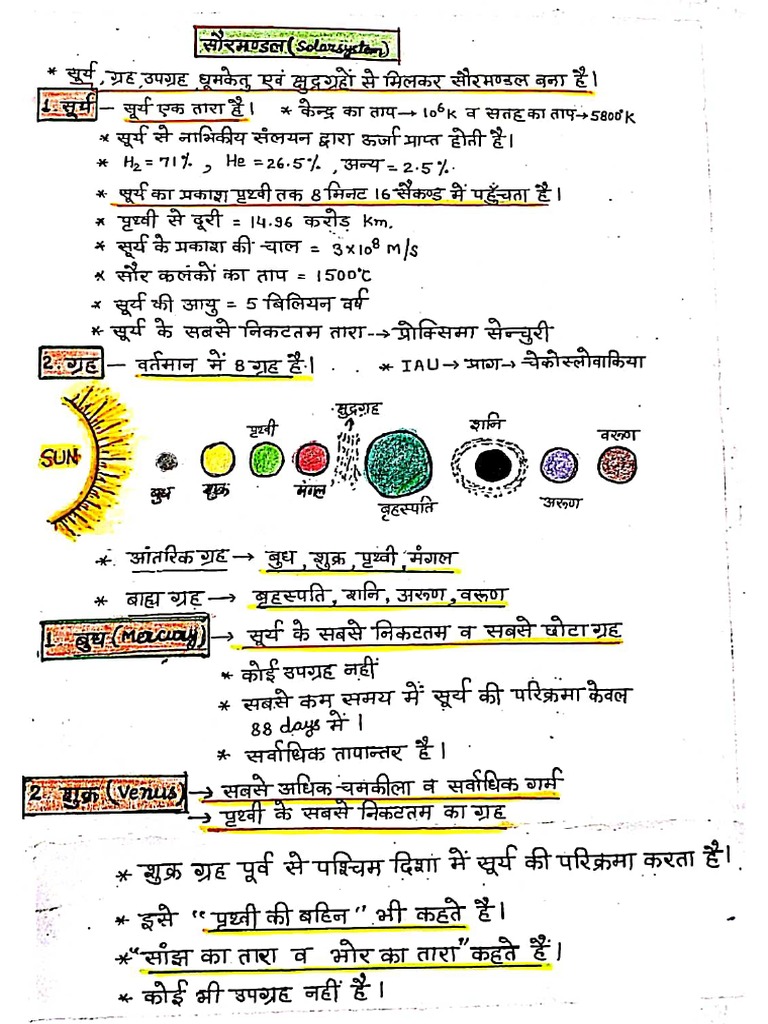 सौरमण्डल (Solarsystem)
* सूर्य, ग्रह, उपग्रह, धूमकेतु एवं क्षुद्रग्रहों से मिलकर सौरमण्डल बना है।
1. सूर्य – सूर्य एक तारा है। * केन्द्र का ताप → 10⁶K व सतह का ताप → 5800°K
* सूर्य से नाभिकीय संलयन द्वारा ऊर्जा प्राप्त होती है।
* H₂ = 71%, He = 26.5%, अन्य = 2.5%.
* सूर्य का प्रकाश पृथ्वी तक 8 मिनट 16 सैकण्ड में पहुँचता है।
* पृथ्वी से दूरी = 14.96 करोड़ Km.
* सूर्य के प्रकाश की चाल = 3×10⁸ M/S
* सौर कलंकों का ताप = 1500°C
* सूर्य की आयु = 5 बिलियन वर्ष
* सूर्य के सबसे निकटतम तारा --> प्रोक्सिमा सेन्चुरी
2. ग्रह – वर्तमान में 8 ग्रह है। . . * IAU → प्राग → चेकोस्लोवाकिया
SUN
बुध
शुक्र
पृथ्वी
मंगल
क्षुद्रग्रह
बृहस्पति
शनि
अरूण
वरूण
* आंतरिक ग्रह → बुध, शुक्र, पृथ्वी, मंगल
* बाह्य ग्रह → बृहस्पति, शनि, अरूण, वरूण
1. बुध (Mercury) → सूर्य के सबसे निकटतम व सबसे छोटा ग्रह
* कोई उपग्रह नहीं
* सबसे कम समय में सूर्य की परिक्रमा केवल
88 days में।
* सर्वाधिक तापान्तर है।
2. शुक्र (Venus) → सबसे अधिक चमकीला व सर्वाधिक गर्म
→ पृथ्वी के सबसे निकटतम का ग्रह
* शुक्र ग्रह पूर्व से पश्चिम दिशा में सूर्य की परिक्रमा करता है।
* इसे "पृथ्वी की बहिन" भी कहते है।
* "सांझ का तारा व भोर का तारा" कहते हैं।
* कोई भी उपग्रह नहीं है।